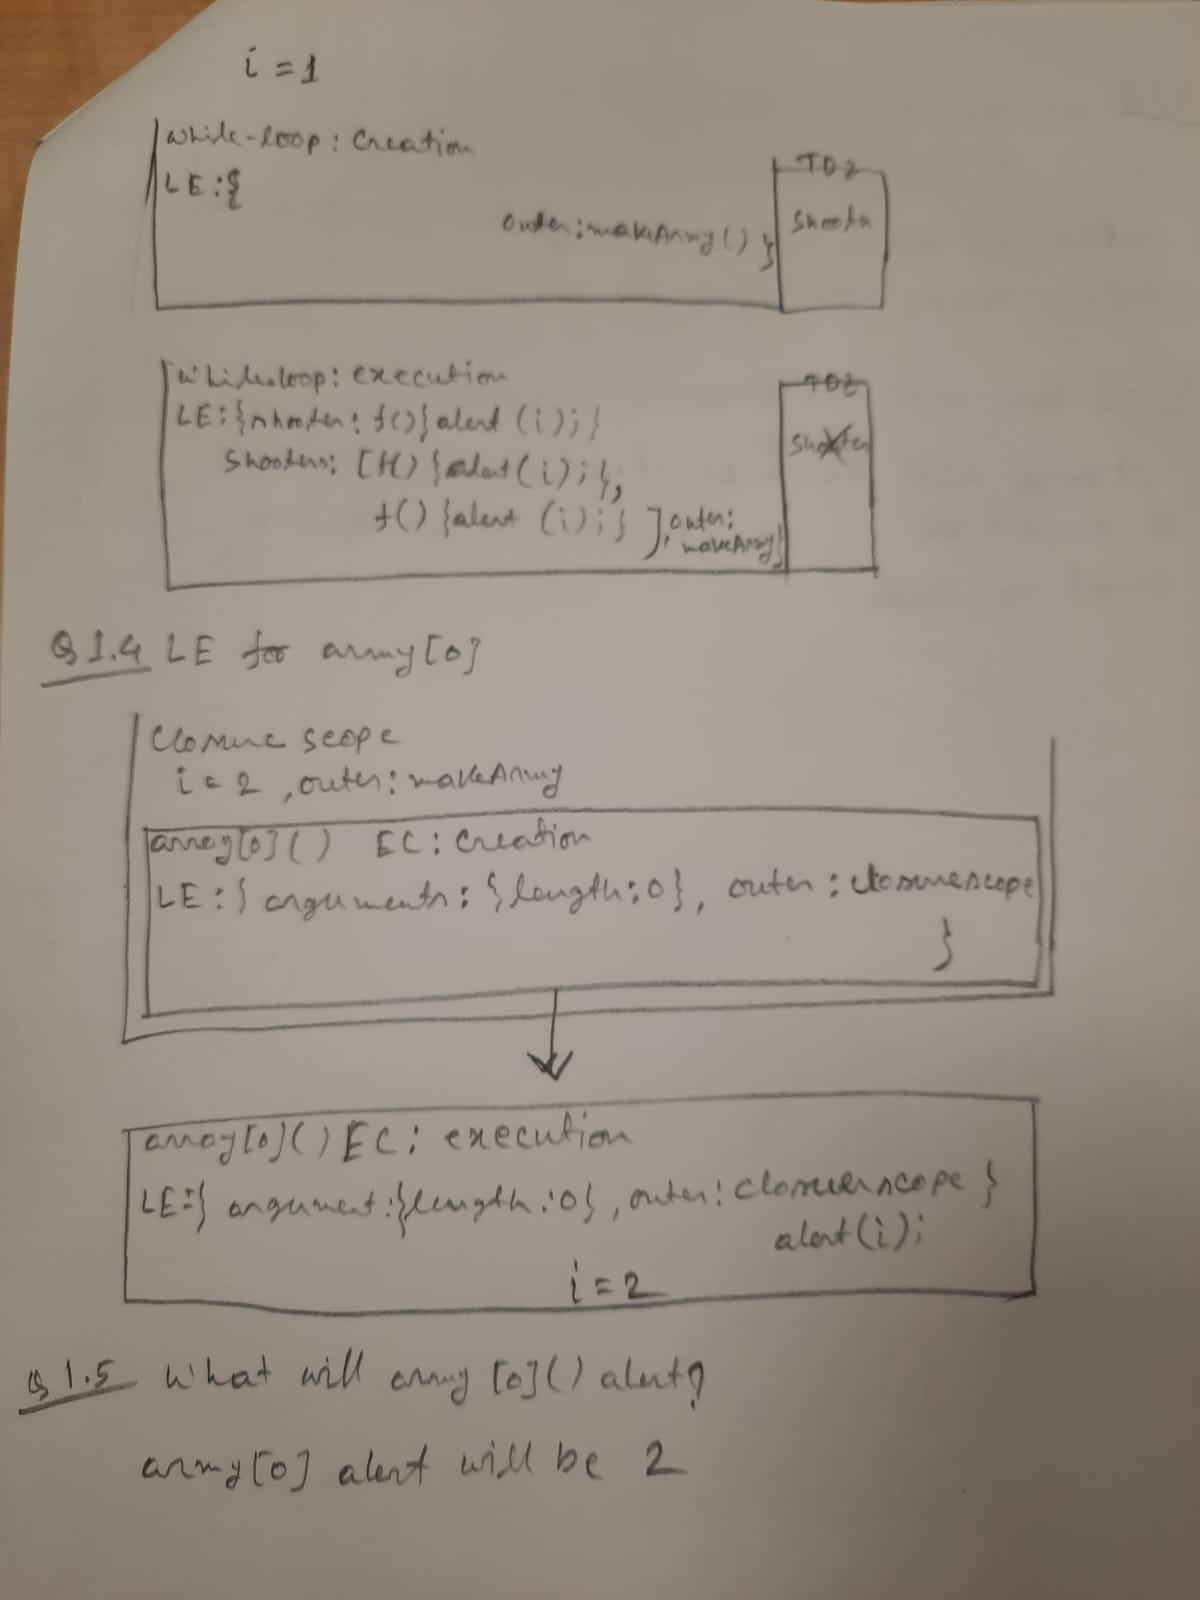 i = 1
while-loop: Creation
TDZ
LE:{
Shooter
outer: makeArmy() }
While loop: execution
TDZ
LE: { shooter: f() { alert (i); }
Shooter
Shooters: [f() { alert(i); },
f() { alert (i); } ], outer:
makeArmy}
Q 1.4 LE for army[0]
Closure scope
i = 2, outer: makeArmy
array[0]() EC: Creation
LE: { arguments: { length: 0}, outer: closurescope
}
array[0]() EC: execution
LE: { argument: { length: 0}, outer: closurescope }
alert(i);
i = 2
Q 1.5 What will army [0]() alert?
army[0] alert will be 2